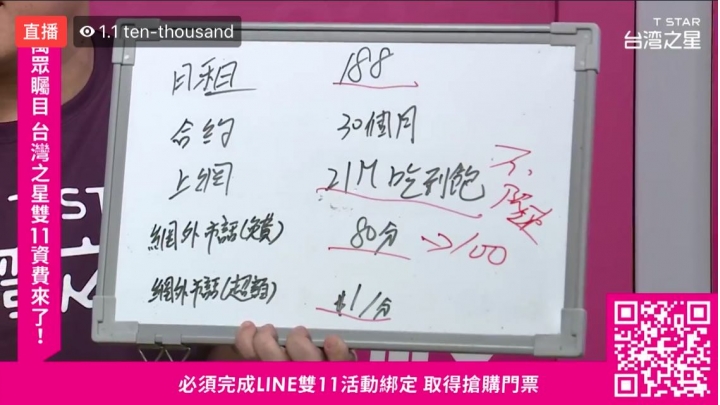 直播
1.1 ten-thousand
T STAR
台灣之星
萬眾矚目 台灣之星雙11資費來了！
月租 188
合約 30個月
上網 21M吃到飽 不限速
網外市話(免費) 80分 →100
網外市話(超額) $1/分
必須完成LINE雙11活動綁定 取得搶購門票